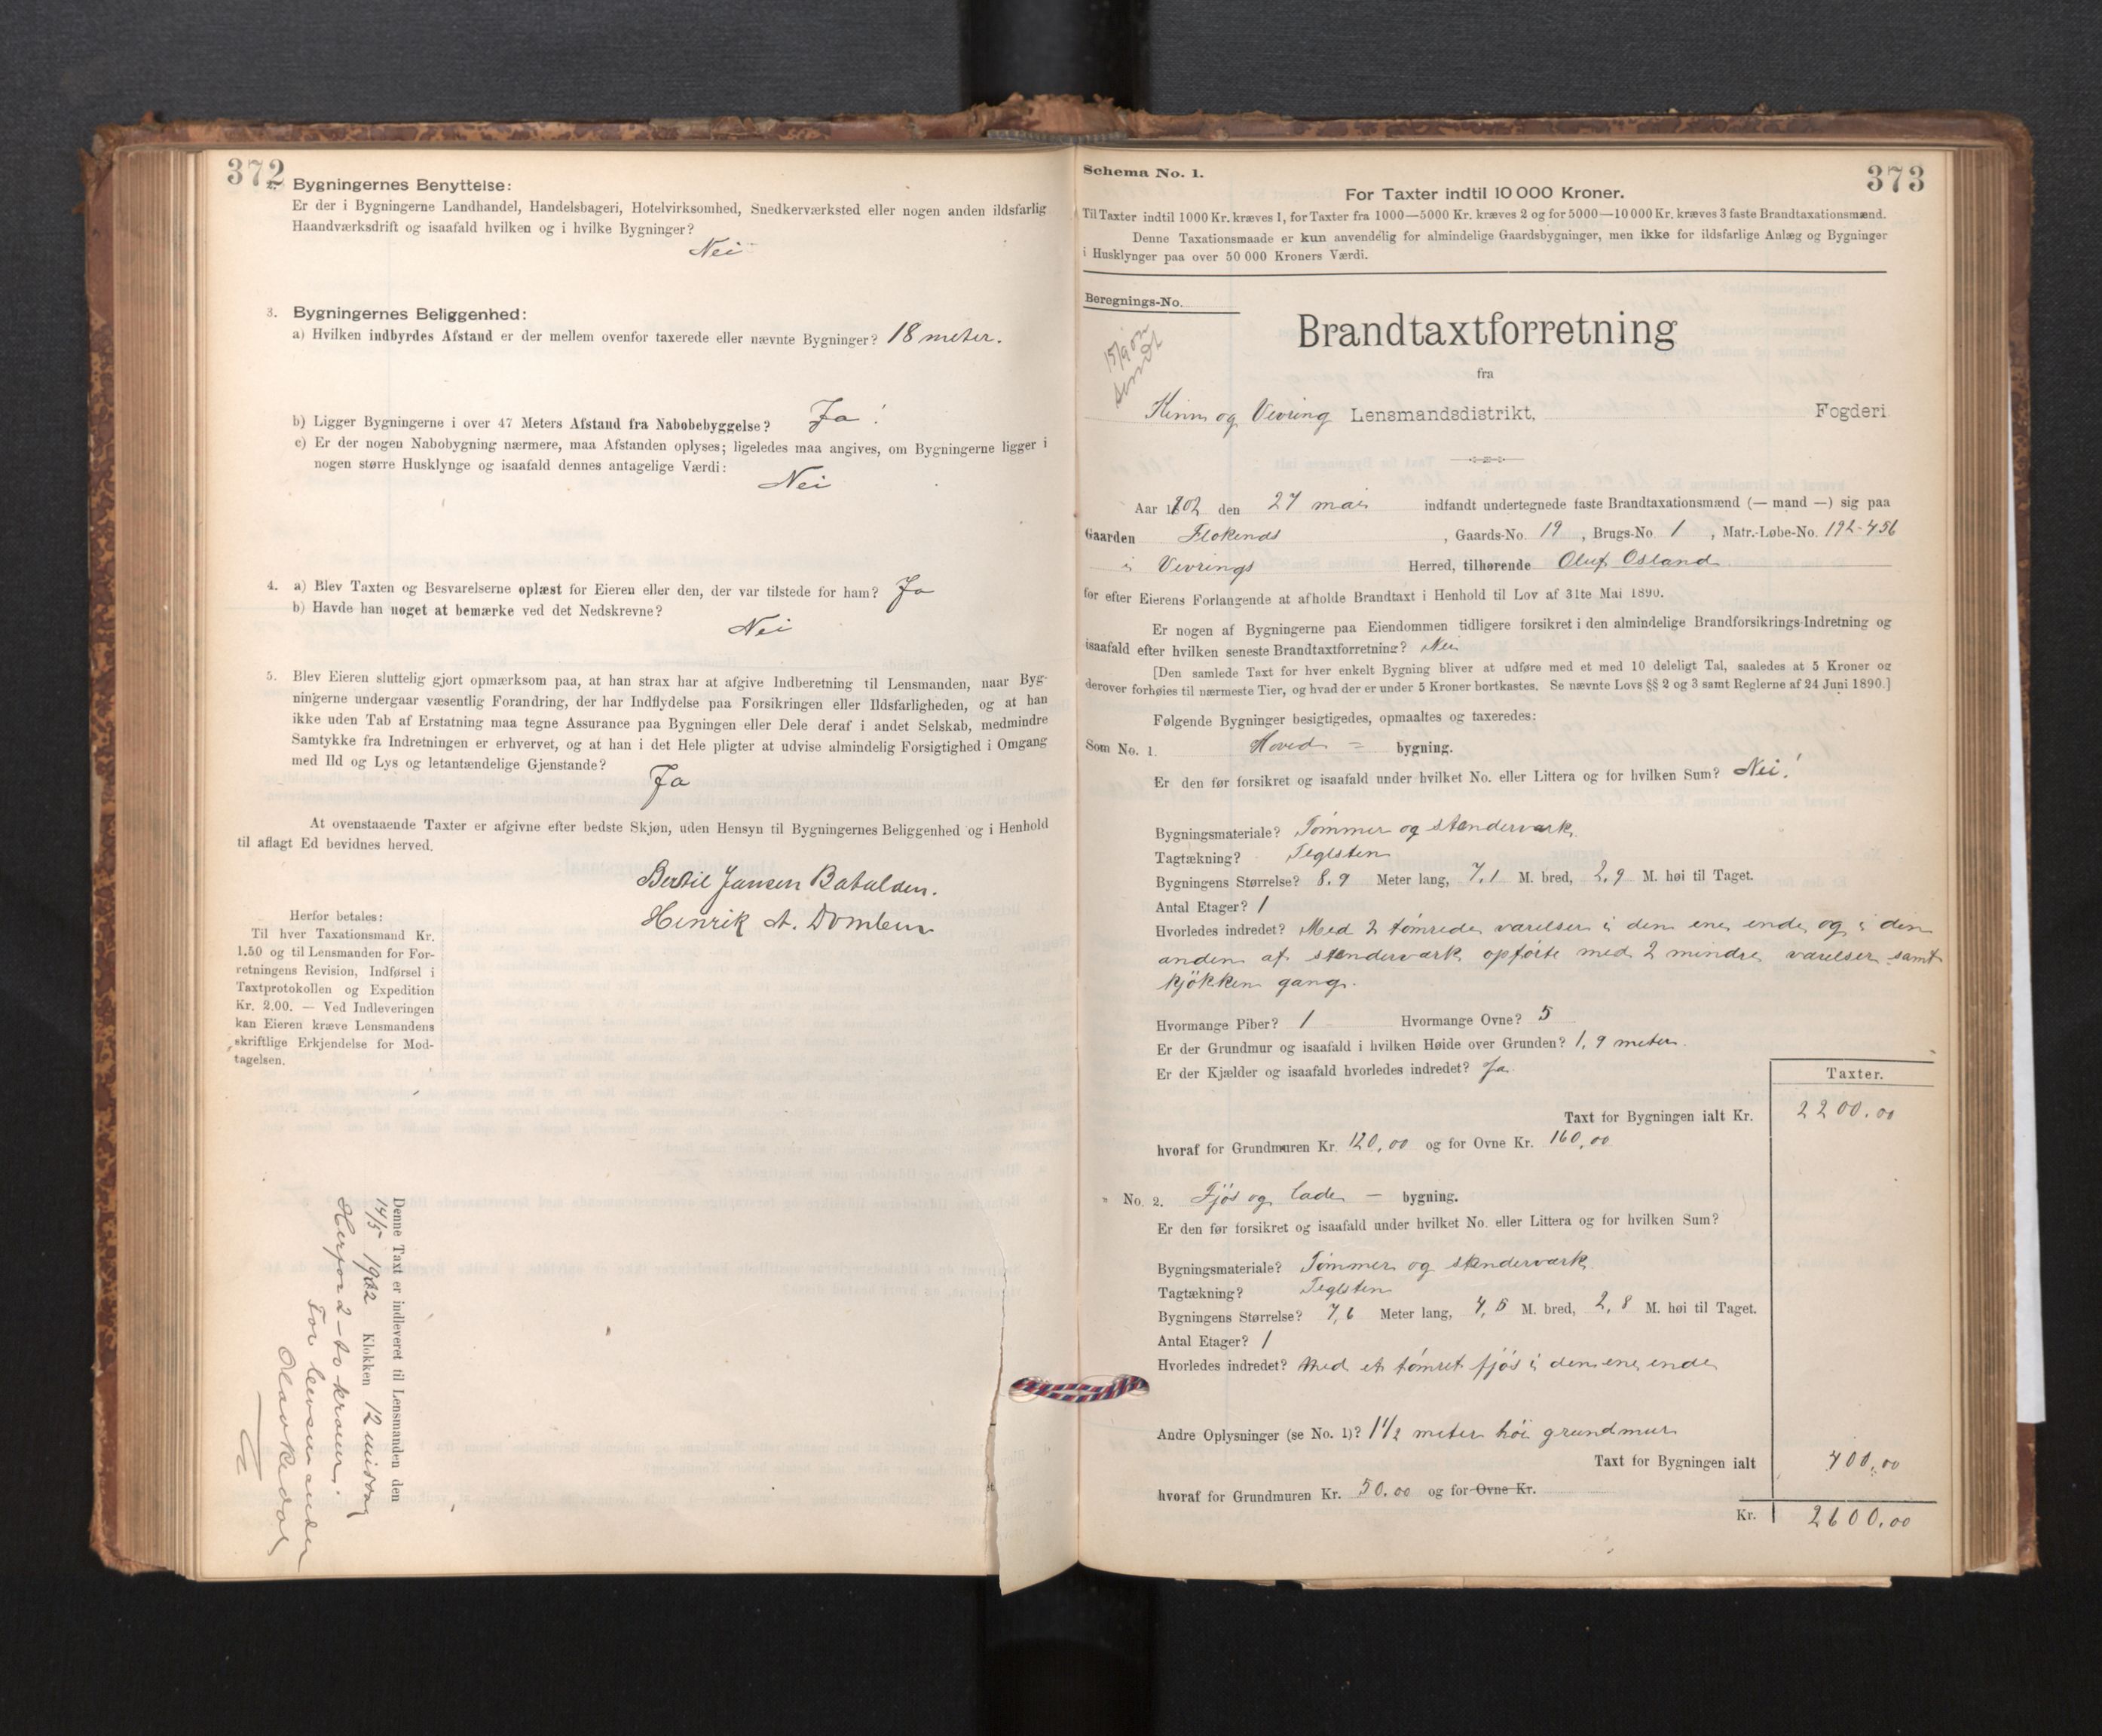 372
2. Bygningernes Benyttelse:
Er der i Bygningerne Landhandel, Handelsbageri, Hotelvirksomhed, Snedkerværksted eller nogen anden ildsfarlig
Haandværksdrift og isaafald hvilken og i hvilke Bygninger?
Nei
3. Bygningernes Beliggenhed:
a) Hvilken indbyrdes Afstand er der mellem ovenfor taxerede eller nævnte Bygninger? 18 meter.
b) Ligger Bygningerne i over 47 Meters Afstand fra Nabobebyggelse? Ja!
c) Er der nogen Nabobygning nærmere, maa Afstanden oplyses; ligeledes maa angives, om Bygningerne ligger i
nogen større Husklynge og isaafald dennes antagelige Værdi:
Nei
4. a) Blev Taxten og Besvarelserne oplæst for Eieren eller den, der var tilstede for ham? Ja
b) Havde han noget at bemærke ved det Nedskrevne?
Nei
5. Blev Eieren sluttelig gjort opmærksom paa, at han strax har at afgive Indberetning til Lensmanden, naar Byg-
ningerne undergaar væsentlig Forandring, der har Indflydelse paa Forsikringen eller Ildsfarligheden, og at han
ikke uden Tab af Erstatning maa tegne Assurance paa Bygningen eller Dele deraf i andet Selskab, medmindre
Samtykke fra Indretningen er erhvervet, og at han i det Hele pligter at udvise almindelig Forsigtighed i Omgang
med Ild og Lys og letantændelige Gjenstande?
Ja
At ovenstaaende Taxter er afgivne efter bedste Skjøn, uden Hensyn til Bygningernes Beliggenhed og i Henhold
til aflagt Ed bevidnes herved.
Bertil Jansen Batalden.
Henrik A. Domben
Herfor betales:
Til hver Taxationsmand Kr.
1.50 og til Lensmanden for For-
retningens Revision, Indførsel i
Taxtprotokollen og Expedition
Kr. 2.00. — Ved Indleveringen
kan Eieren kræve Lensmandens
skriftlige Erkjendelse for Mod-
tagelsen.
Denne Taxt er indleveret til Lensmanden den
14/5 1902 Klokken 12 middag
Herfor 2 - to kroner.
For lensmanden
373
Schema No. 1.
For Taxter indtil 10 000 Kroner.
Til Taxter indtil 1000 Kr. kræves 1, for Taxter fra 1000—5000 Kr. kræves 2 og for 5000—10 000 Kr. kræves 3 faste Brandtaxationsmænd.
Denne Taxationsmaade er kun anvendelig for almindelige Gaardsbygninger, men ikke for ildsfarlige Anlæg og Bygninger
i Husklynger paa over 50 000 Kroners Værdi.
Beregnings-No.
15/9 02
sendt
Brandtaxtforretning
fra
Kinn og Vevring Lensmandsdistrikt, Fogderi
Aar 1902 den 27 mai indfandt undertegnede faste Brandtaxationsmænd (— mand —) sig paa
Gaarden Flokenes, Gaards-No. 19, Brugs-No. 1, Matr.-Løbe-No. 192-456
i Vevrings Herred, tilhørende Oluf Osland
for efter Eierens Forlangende at afholde Brandtaxt i Henhold til Lov af 31te Mai 1890.
Er nogen af Bygningerne paa Eiendommen tidligere forsikret i den almindelige Brandforsikrings-Indretning og
isaafald efter hvilken seneste Brandtaxtforretning? Nei
[Den samlede Taxt for hver enkelt Bygning bliver at udføre med et med 10 deleligt Tal, saaledes at 5 Kroner og
derover forhøies til nærmeste Tier, og hvad der er under 5 Kroner bortkastes. Se nævnte Lovs §§ 2 og 3 samt Reglerne af 24 Juni 1890.]
Følgende Bygninger besigtigedes, opmaaltes og taxeredes:
Som No. 1. Hoved = bygning.
Er den før forsikret og isaafald under hvilket No. eller Littera og for hvilken Sum? Nei!
Bygningsmateriale? Tømmer og stenderværk.
Tagtækning? Teglsten
Bygningens Størrelse? 8,9 Meter lang, 7,1 M. bred, 2,9 M. høi til Taget.
Antal Etager? 1
Hvorledes indredet? Med 2 tømrede værelser i den ene ende og i den
anden af stenderværk opførte med 2 mindre værelser samt
kjøkken gang.
Hvormange Piber? 1 Hvormange Ovne? 5
Er der Grundmur og isaafald i hvilken Høide over Grunden? 1,9 meter.
Er der Kjælder og isaafald hvorledes indredet? Ja
Taxter.
Taxt for Bygningen ialt Kr. 2200,00
hvoraf for Grundmuren Kr. 120,00 og for Ovne Kr. 160,00
" No. 2. Fjøs og lade — bygning.
Er den før forsikret og isaafald under hvilket No. eller Littera og for hvilken Sum?
Bygningsmateriale? Tømmer og stenderværk
Tagtækning? Teglsten
Bygningens Størrelse? 7,6 Meter lang, 4,5 M. bred, 2,8 M. høi til Taget.
Antal Etager? 1
Hvorledes indredet? Med et tømret fjøs i den ene ende
Andre Oplysninger (se No. 1)? 1 1/2 meter høi grundmur
Taxt for Bygningen ialt 400,00
hvoraf for Grundmuren Kr. 50,00 og for Ovne Kr.
Kr. 2600,00